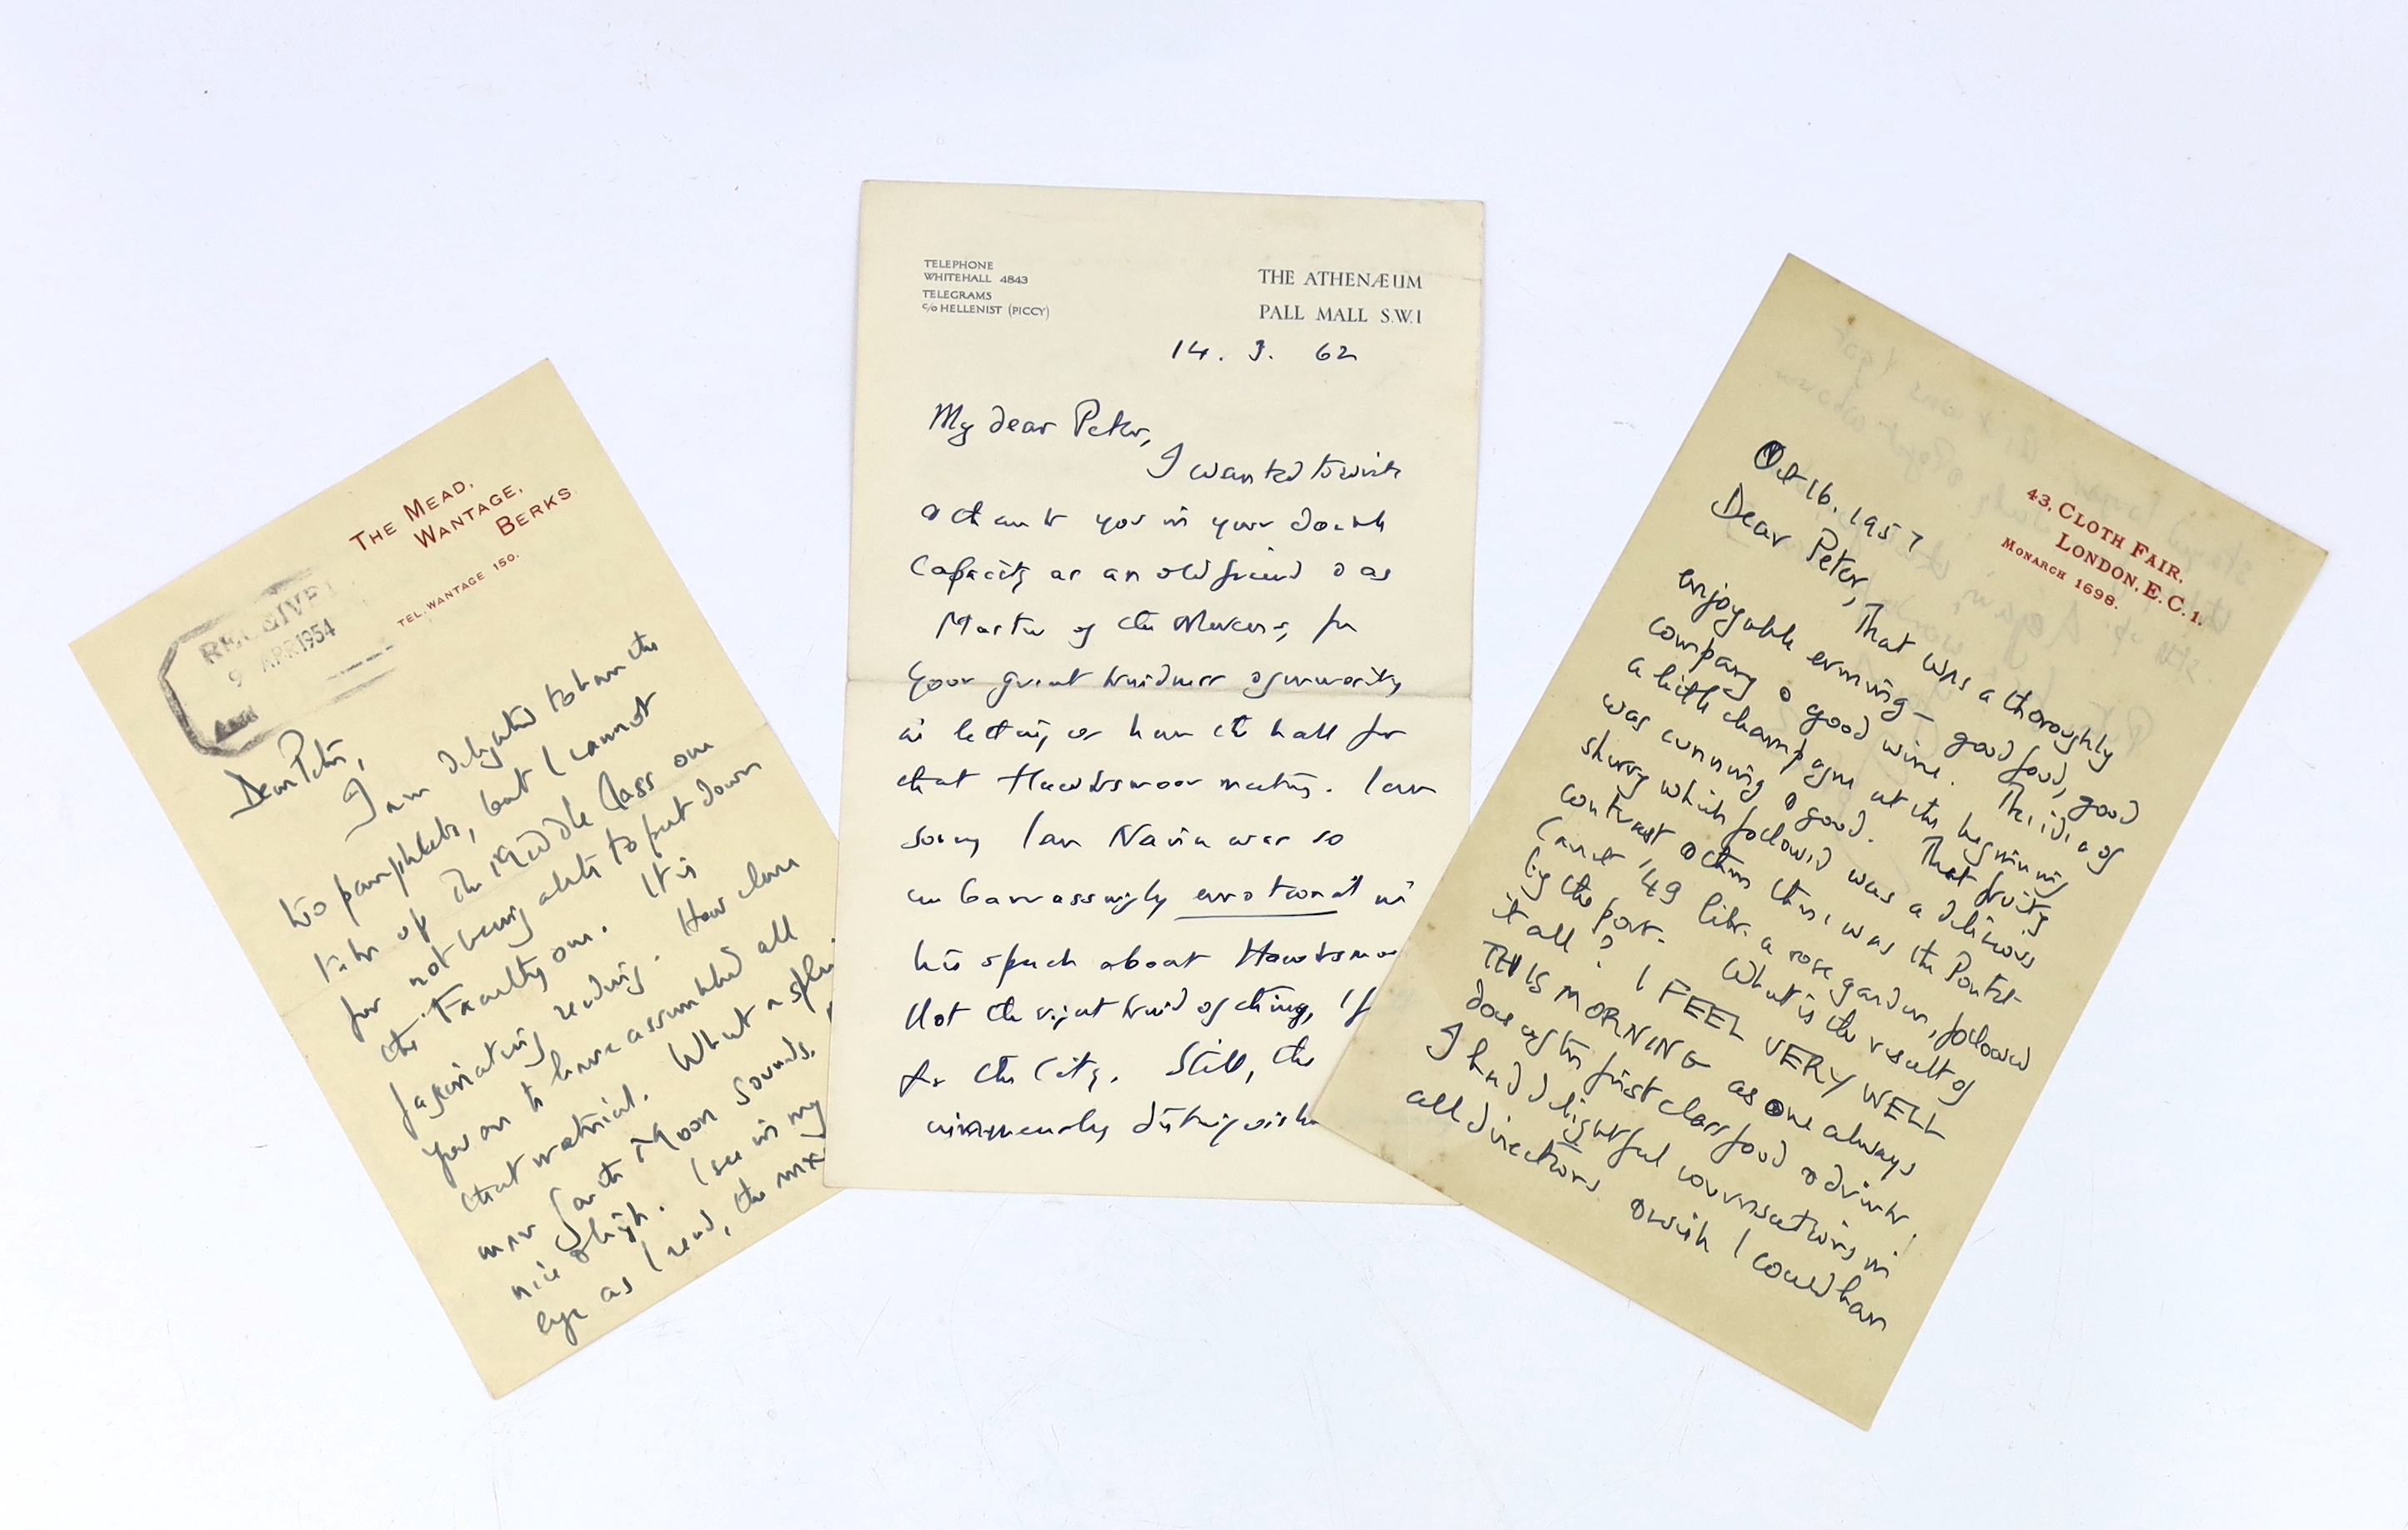 THE MEAD,
WANTAGE,
BERKS.
TEL. WANTAGE 150.
RECEIVE
9 APR 1954
Dear Peter,
I am delighted to have the
two pamphlets, but I cannot
take up the Middle Class one
for not being able to put down
the Faculty one. It is
fascinating reading. How clever
you are to have assembled all
that material. What a
man Garth Moon sounds,
nice & high. I see in my
eye as I read, the
TELEPHONE
WHITEHALL 4843
TELEGRAMS
c/o HELLENIST (PICCY)
THE ATHENÆUM
PALL MALL S.W.1
14. 3. 62
My dear Peter,
I wanted to write
& thank you in your double
capacity as an old friend & as
Master of the Mercers, for
your great kindness & generosity
in letting us have the hall for
that Hawksmoor meeting. I am
sorry Ian Nairn was so
embarrassingly emotional in
his speech about Hawksmo
Not the right kind of thing, I f
for the City. Still, the
immensely distinguish
43, CLOTH FAIR,
LONDON, E.C.1.
MONARCH 1698.
Oct 16. 1957
Dear Peter, That was a thoroughly
enjoyable evening — good food, good
company & good wine. The idea of
a little champagne at the beginning
was cunning & good. That fruity
sherry which followed was a delicious
contrast & then there was the Pontet-
Canet '49 like a rose garden, followed
by the port. What is the result of
it all? I FEEL VERY WELL
THIS MORNING as one always
does after first class food & drink.
I had delightful conversations in
all directions & wish I could have